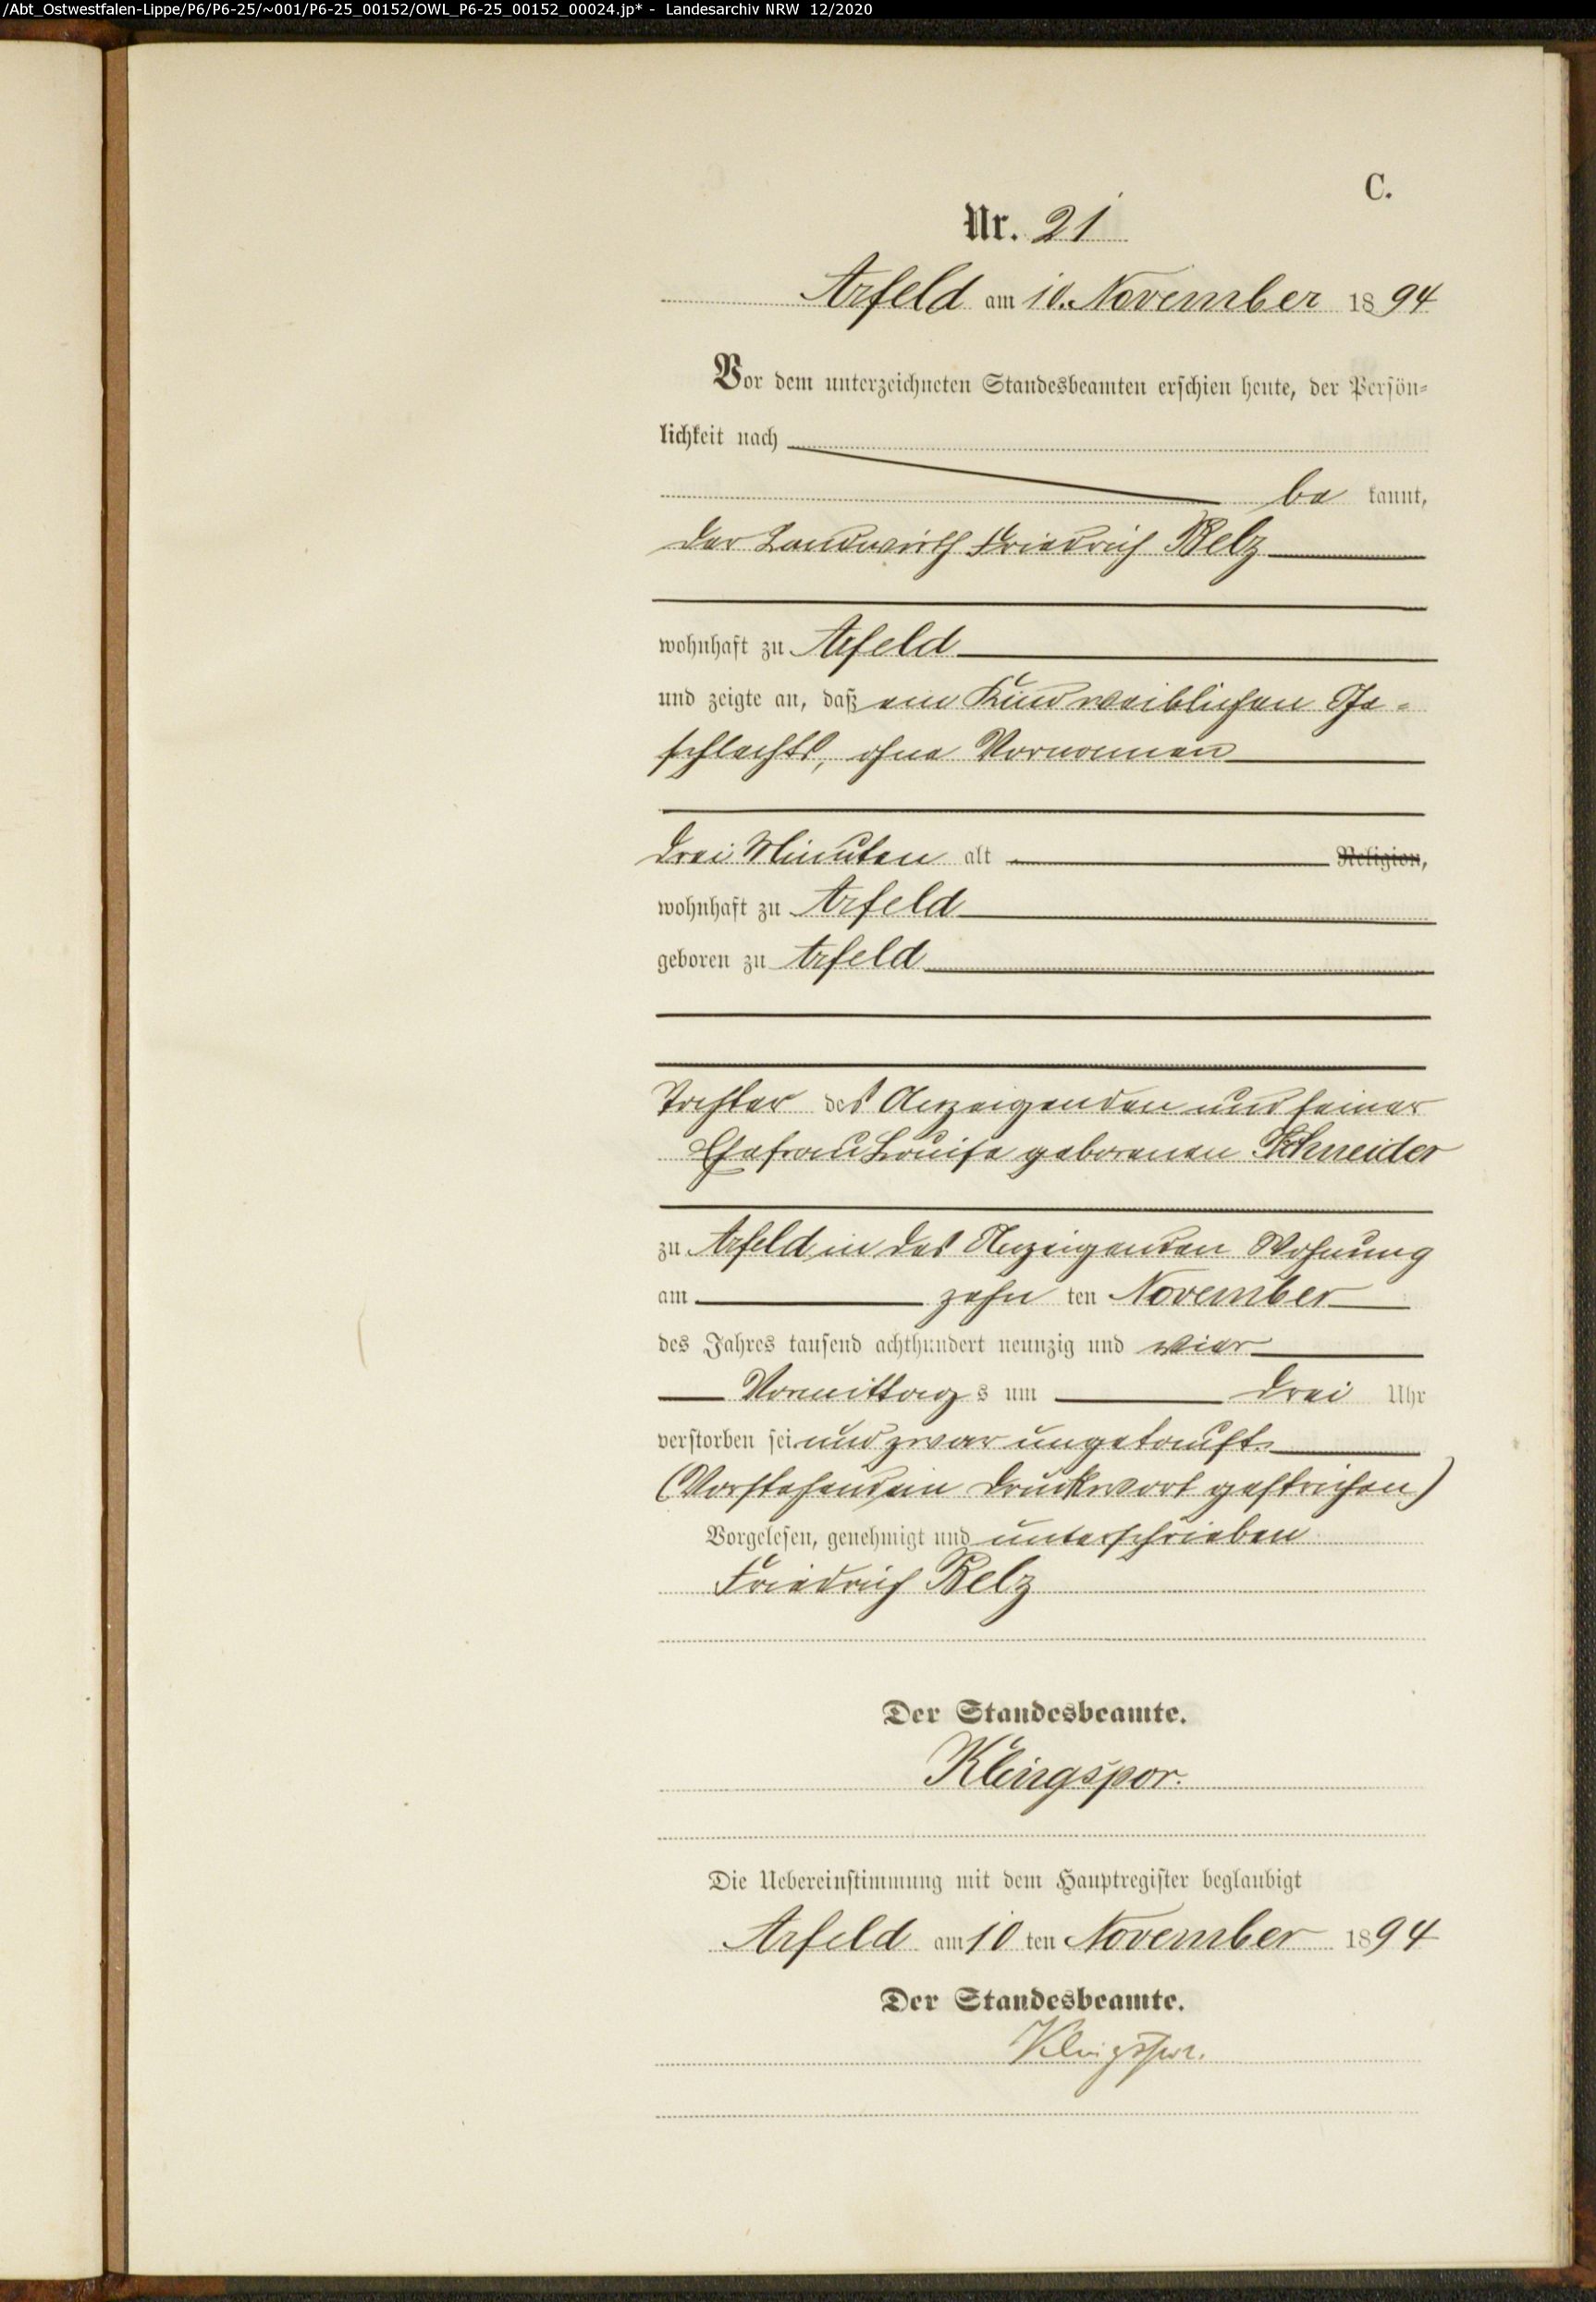 /Abt_Ostwestfalen-Lippe/P6/P6-25/~001/P6-25_00152/OWL_P6-25_00152_00024.jp* - Landesarchiv NRW 12/2020
C.
Nr. 21
Arfeld am 10. November 1894
Vor dem unterzeichneten Standesbeamten erschien heute, der Persön-
lichkeit nach
bekannt,
der Landwirth Friedrich Belz
wohnhaft zu Arfeld
und zeigte an, daß ein Kind weiblichen Ge-
schlechts, ohne Vornamen
drei Minuten alt Religion,
wohnhaft zu Arfeld
geboren zu Arfeld
Tochter des Anzeigenden und seiner
Ehefrau Louise geborenen Schneider
zu Arfeld in des Anzeigenden Wohnung
am zehn ten November
des Jahres tausend achthundert neunzig und vier
Vormittags um drei Uhr
verstorben sei und zwar ungetauft.
(Vorstehend ein Druckwort gestrichen)
Vorgelesen, genehmigt und unterschrieben
Friedrich Belz
Der Standesbeamte.
Klingspor.
Die Uebereinstimmung mit dem Hauptregister beglaubigt
Arfeld am 10 ten November 1894
Der Standesbeamte.
Klingspor.